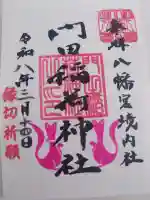 八幡宮境内社
門田稲荷神社
令和八年二月十四日
縁切祈願